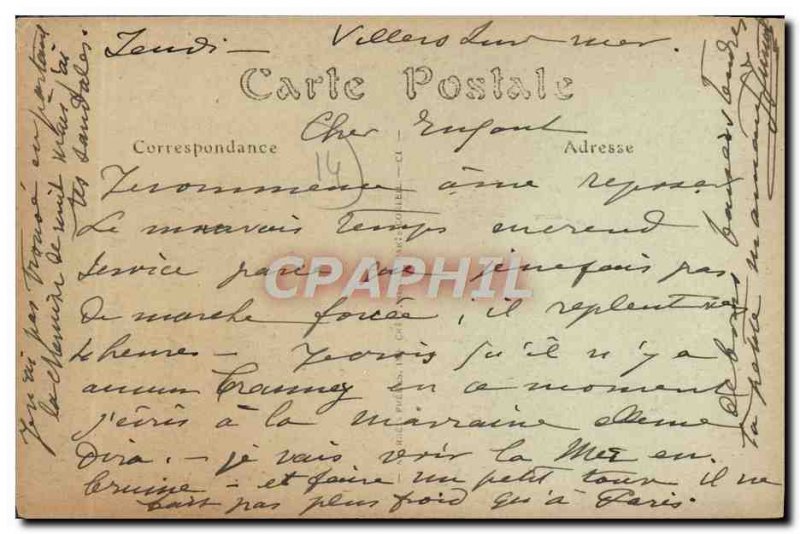 Jeudi — Villers sur mer.
Carte Postale
Cher Enfant
Correspondance
Adresse
14
Je commence à me reposer
Le mauvais temps me rend
service parce que je ne fais pas
de marche forcée, il repleut
4 heures — Je crois qu'il n'y a
aucun en ce moment
j'écris à la marraine elle me
Dira. — je vais voir la Mer en
brume — et faire un petit tour il ne
fait pas plus froid qu'à Paris.
Je n'ai pas trouvé en partant
la chemise de nuit mais j'ai
tes sandales.
de bons baisers tendres
ta petite maman
CPAPHIL